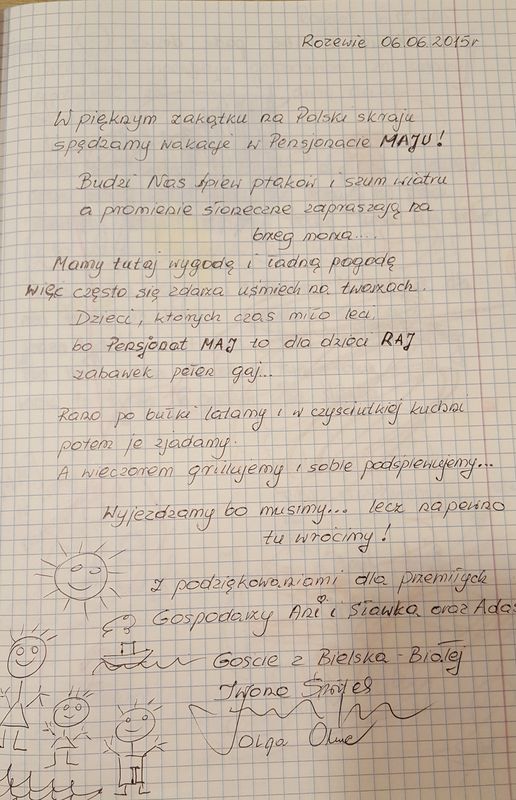 Rozewie 06.06.2015r
W pięknym zakątku na Polski skraju
spędzamy wakacje w Pensjonacie MAJU!
Budzi Nas śpiew ptaków i szum wiatru
a promienie słoneczne zapraszają na
brzeg morza....
Mamy tutaj wygodę i ładną pogodę
więc często się zdarza uśmiech na twarzach.
Dzieci, których czas miło leci,
bo Pensjonat MAJ to dla dzieci RAJ
zabawek pełen gaj...
Rano po bułki latamy i w czyściutkiej kuchni
potem je zjadamy.
A wieczorem grillujemy i sobie podśpiewujemy...
Wyjeżdzamy bo musimy... lecz napewno
tu wrócimy!
Z podziękowaniami dla przemiłych
Gospodarzy Ani i Sławka oraz Adas
Goście z Bielska-Białej
Iwona
Olga